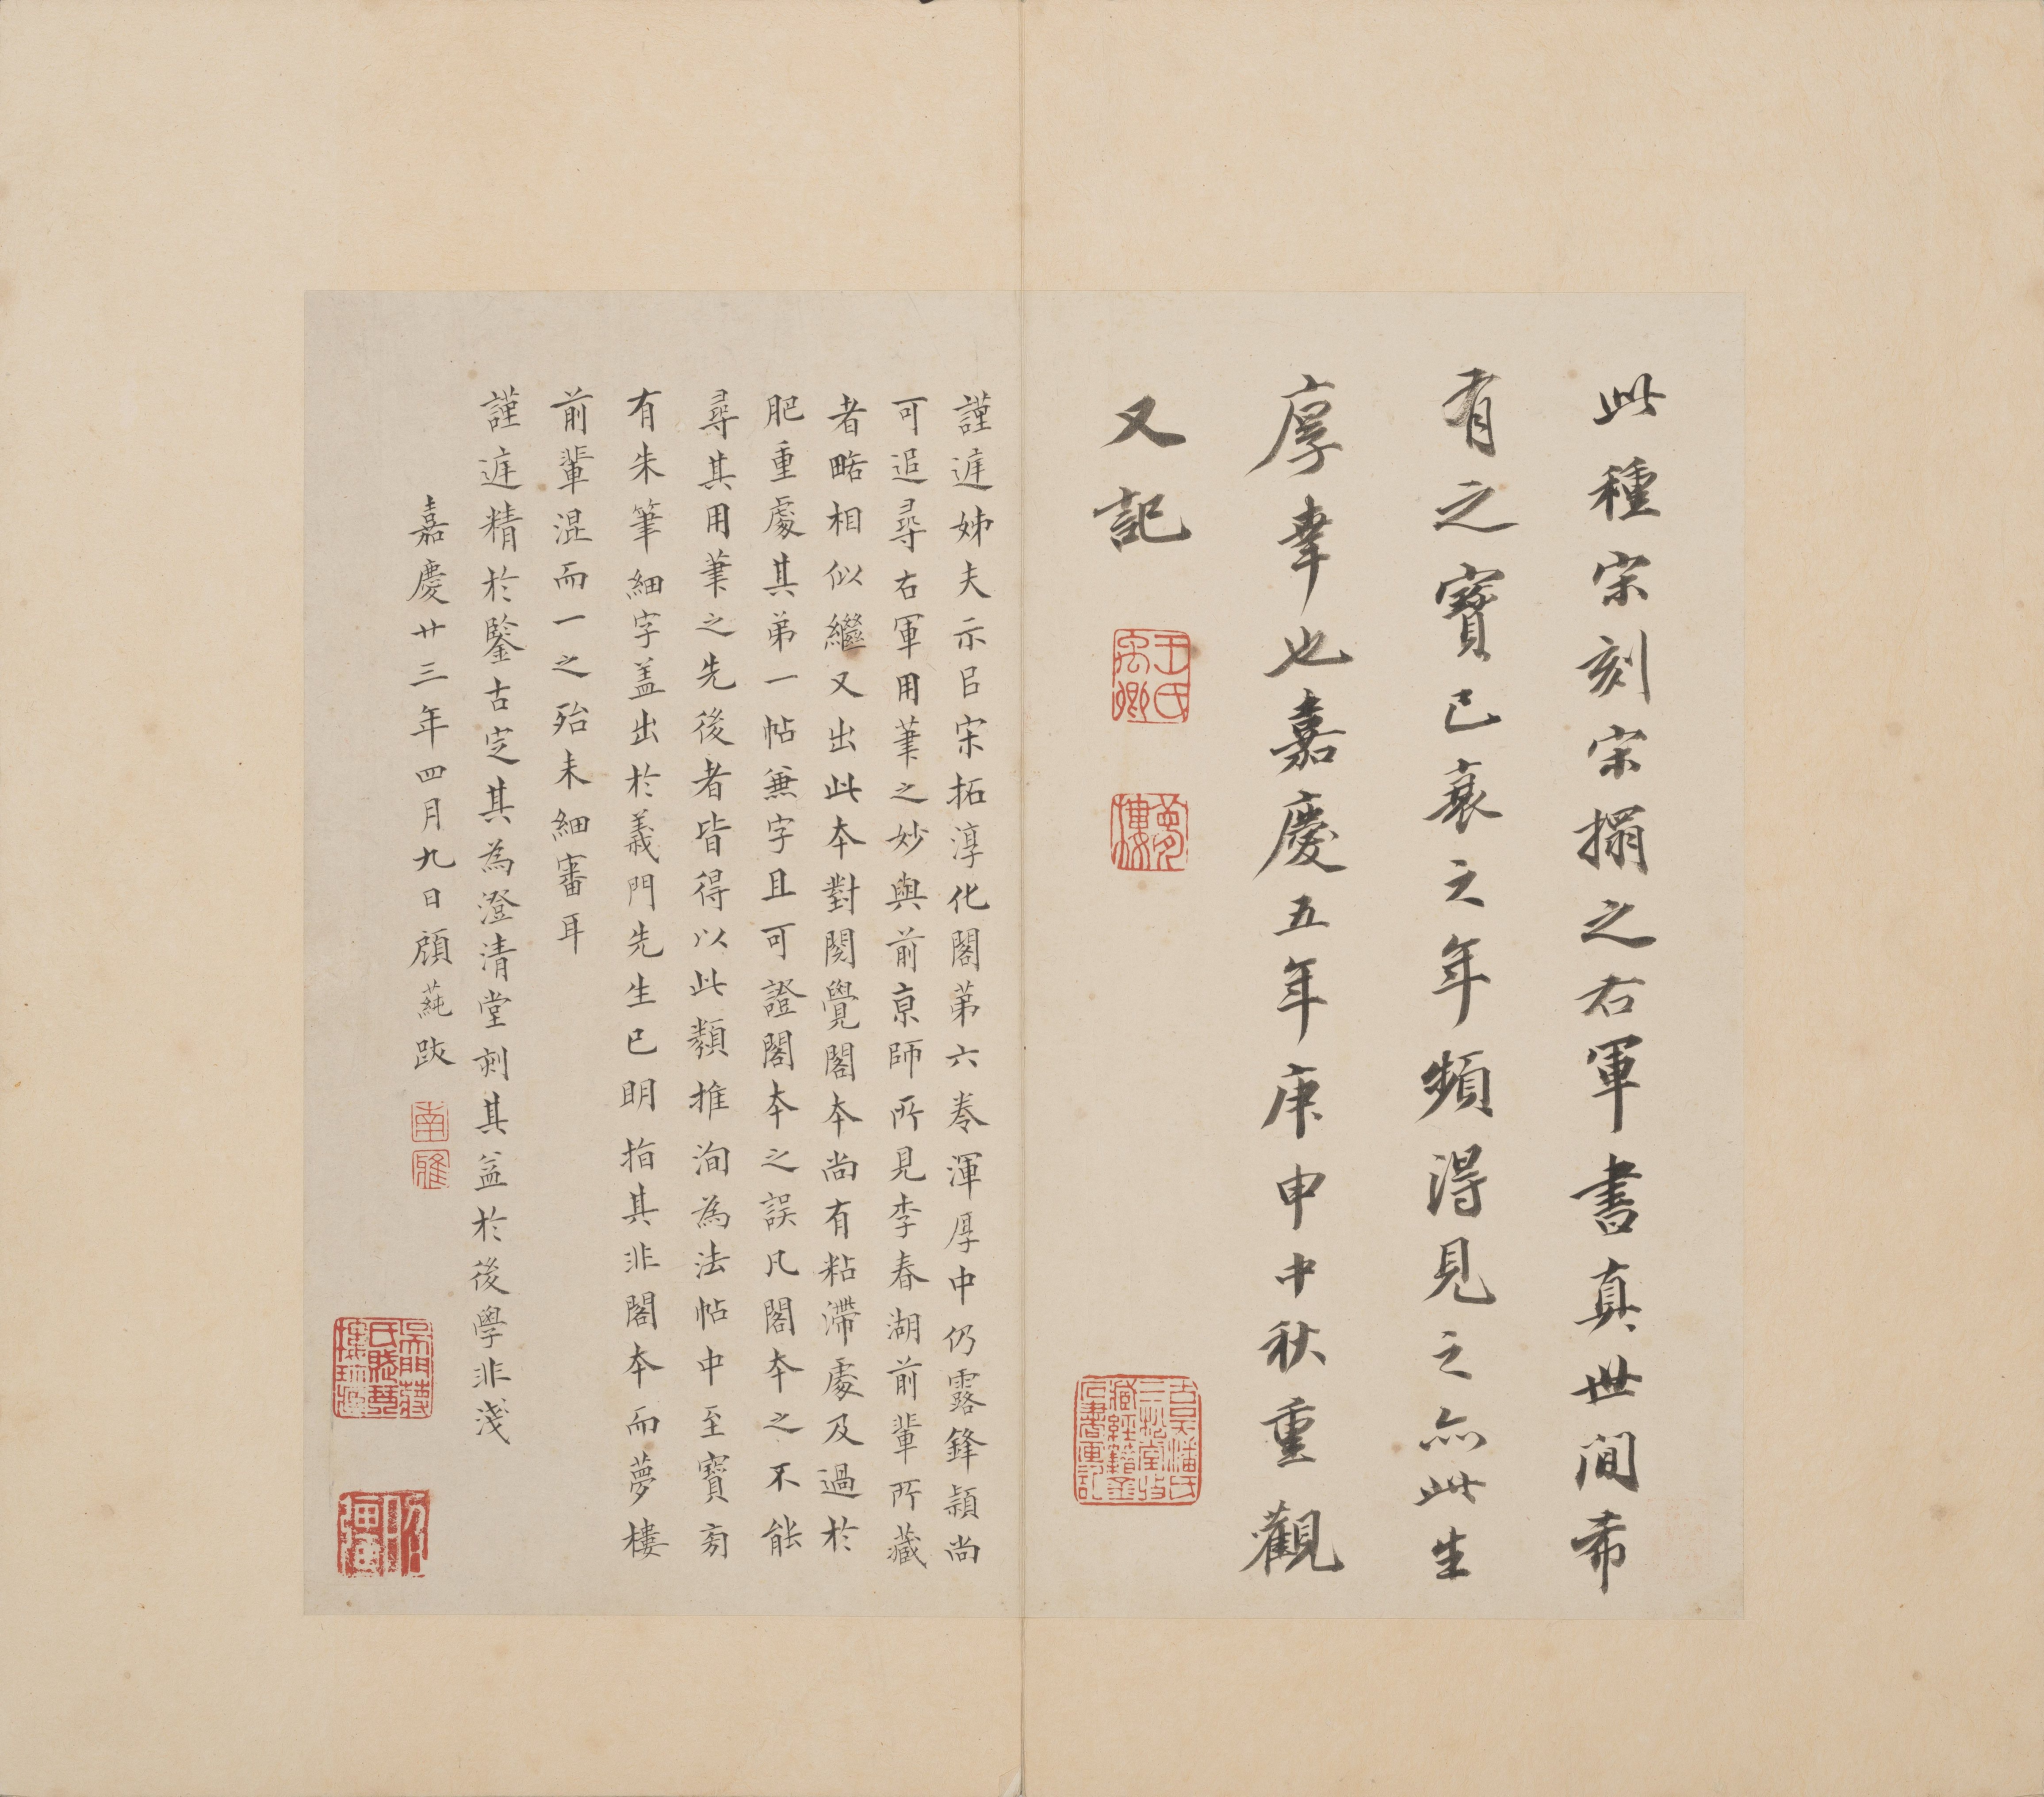 此種宋刻宋搨之右軍書真世間希
有之寶已衰之年頻得見之亦此生
厚幸也嘉慶五年庚申中秋重觀
又記
王氏禹卿
夢樓
謹遅姊夫示𠯁宋拓淳化閣苐六卷渾厚中仍露鋒穎尚
可追尋右軍用筆之妙與前京師所見李春湖前輩所藏
者略相似繼又出此本對閱覺閣本尚有粘滯處及過於
肥重處其弟一帖無字且可證閣本之誤凡閣本之不能
尋其用筆之先後者皆得以此類推洵為法帖中至寶旁
有朱筆細字蓋出於義門先生已明指其非閣本而夢樓
前輩混而一之殆未細審耳
謹遅精於鑒古定其為澄清堂刻其益於後學非淺
嘉慶廿三年四月九日顧蒓跋
南雅